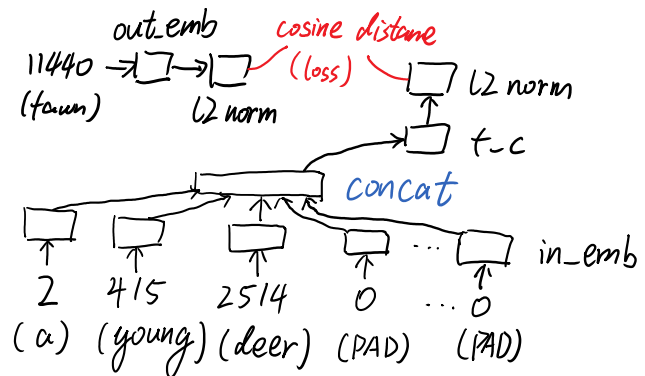 out_emb
cosine distane
11440
(loss)
(fawn)
l2 norm
l2 norm
t_c
concat
in_emb
2
415
2514
0
...
0
(a)
(young)
(deer)
(PAD)
(PAD)